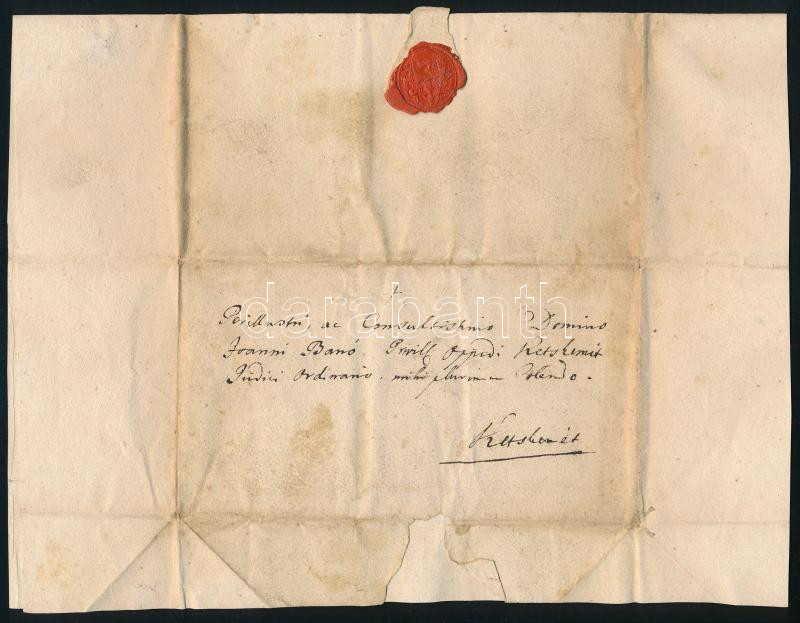 Perillustri, ac Consultissimo Domino
Joanni Banó Privil Oppidi Ketskemét
Judici Ordinario. mihi plurimum Colendo.
Ketskemét
darabanth